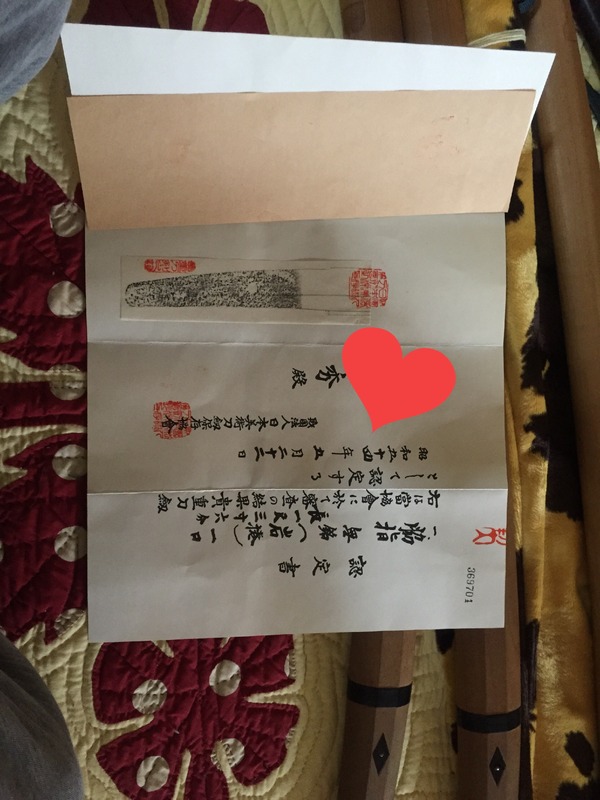 369701
認定書
一、脇指 無銘(岩捲) 一口
長一尺三寸六分
右は當協會に於て審査の結果貴重刀剣
として認定する
昭和五十四年五月二十三日
財團法人日本美術刀剣保存協會
殿